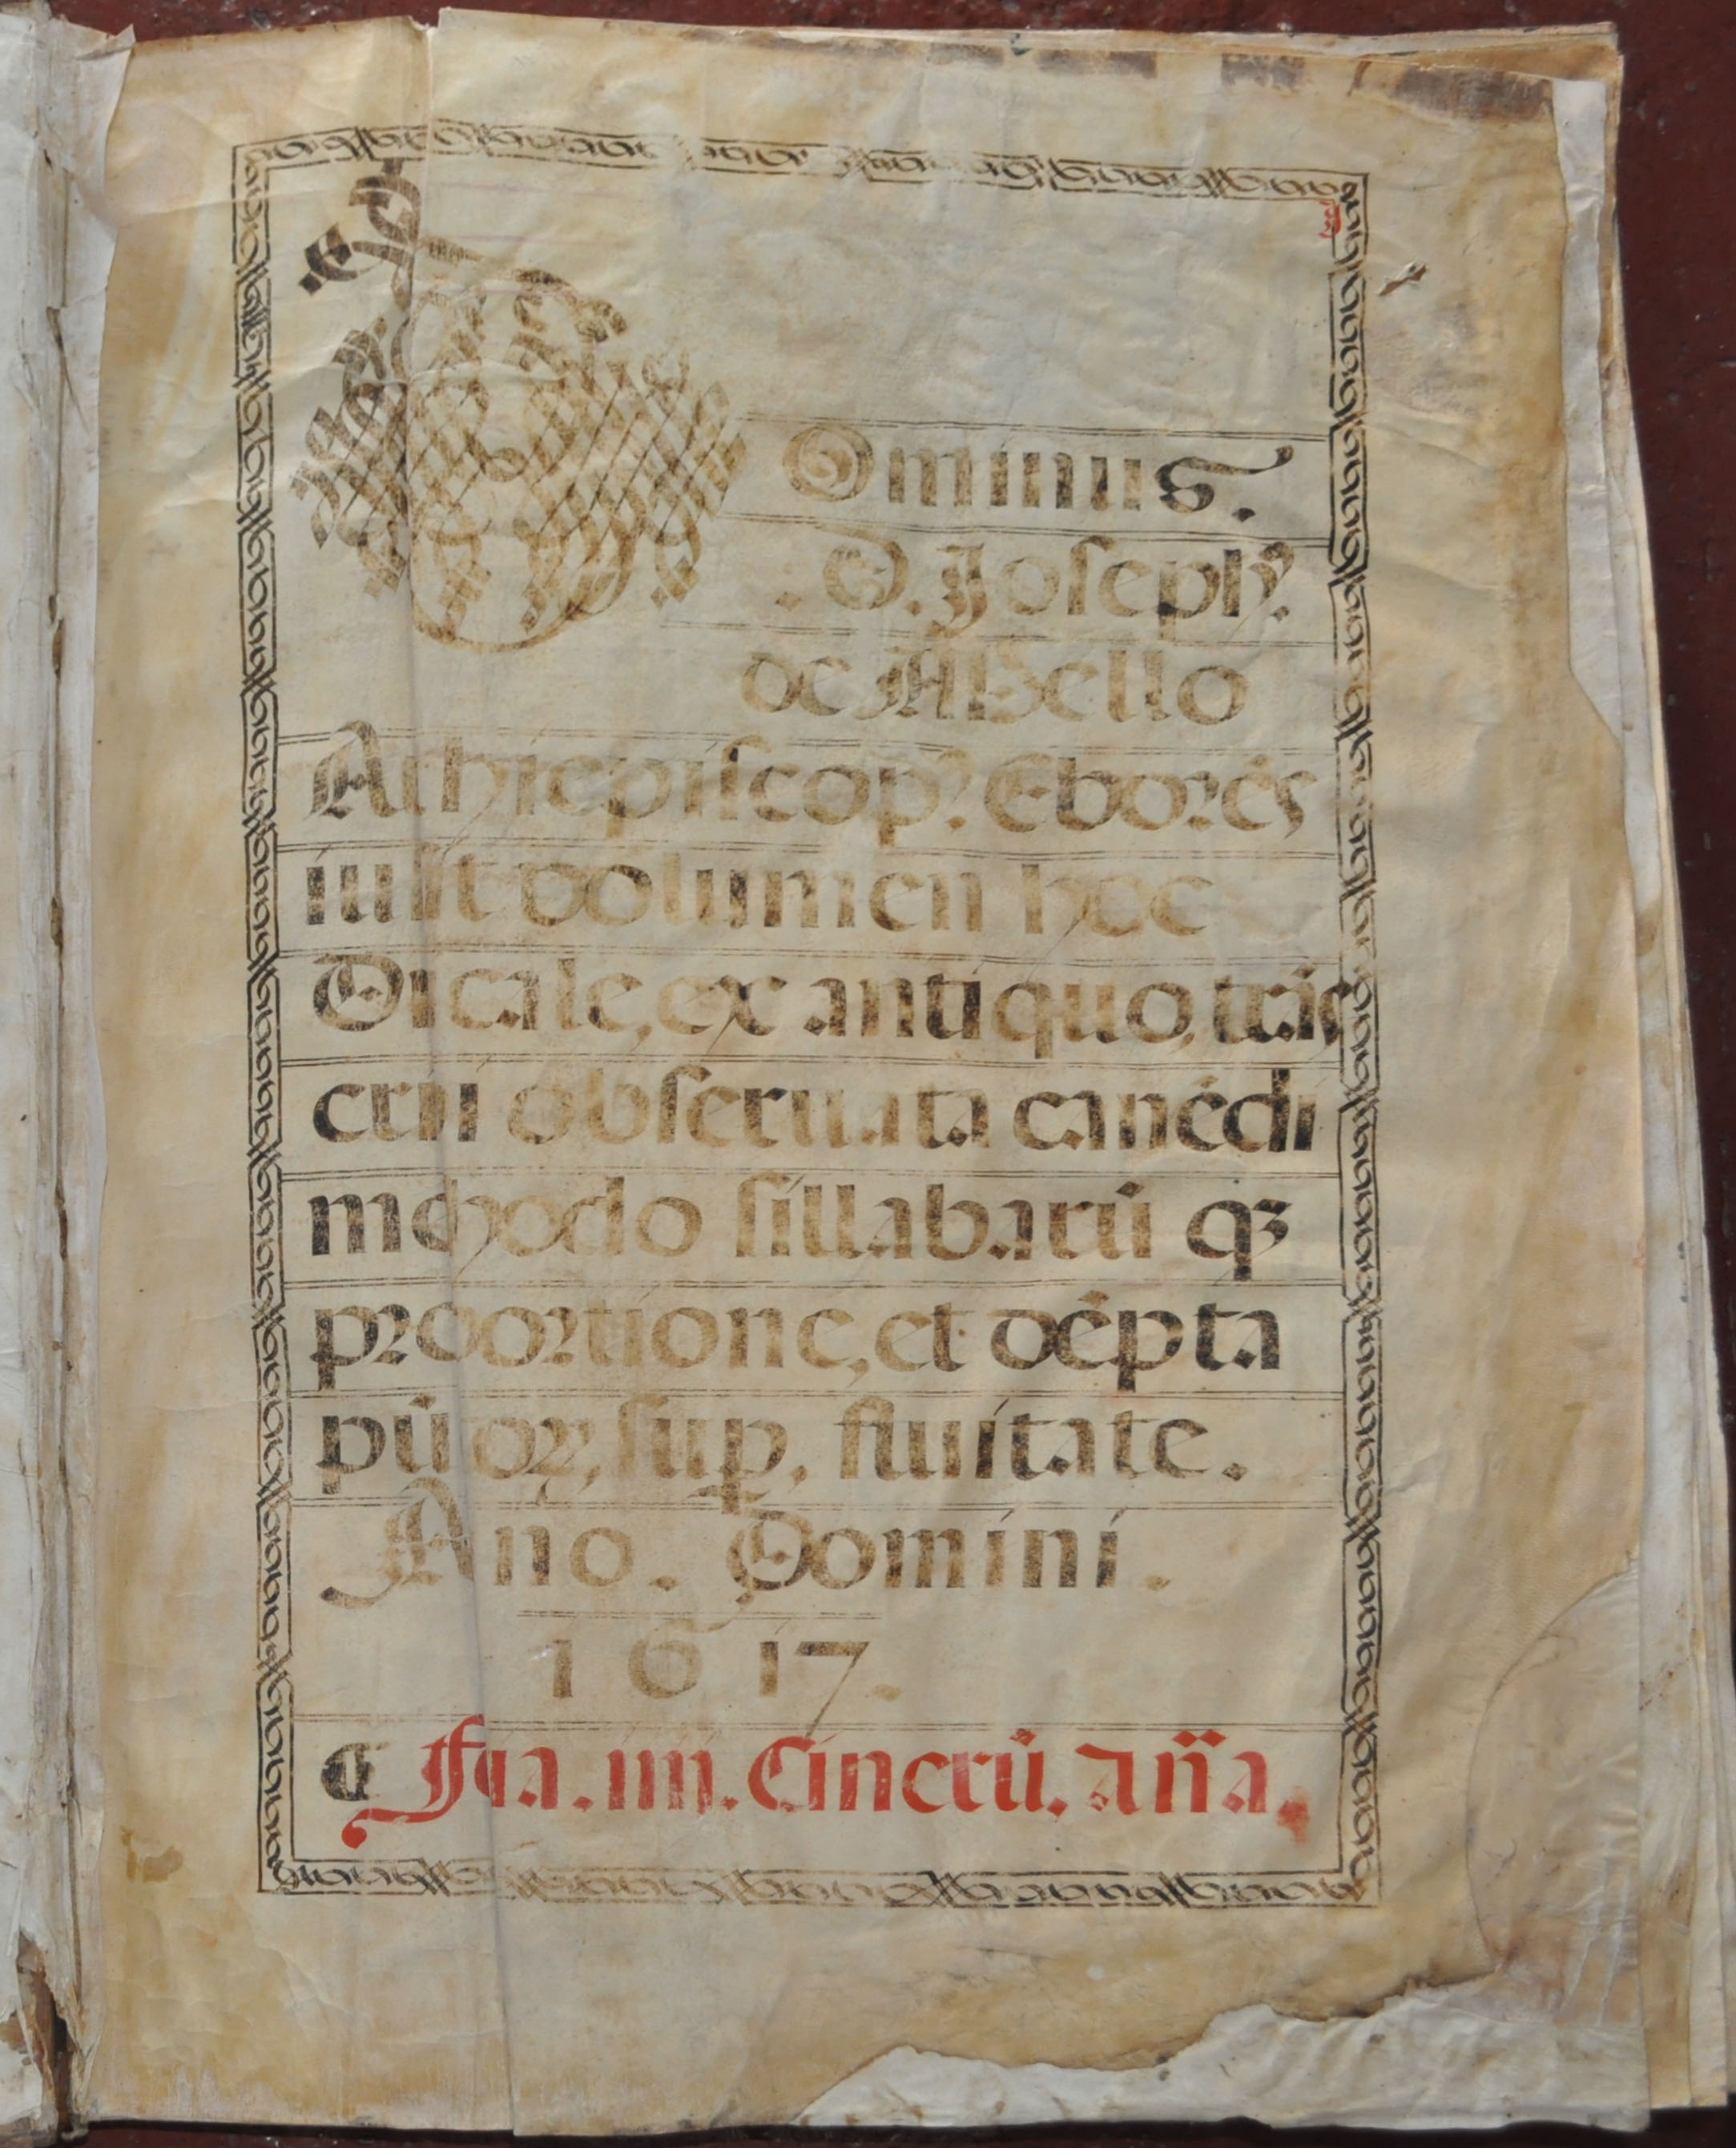 DOminus.
D. Joseph⁹.
de Mello
Archiepiscop⁹. Eborẽs
iussit volumen hoc
Oicale, ex antiquo, trãs
cribi observata canẽdi
methodo sillabarũ qꝫ
proportione, et dẽpta
pũctoꝝ, suꝑ. fluitate.
Ano. Domini.
1617.
¶ Fria. iiij. Cinerũ. añа.